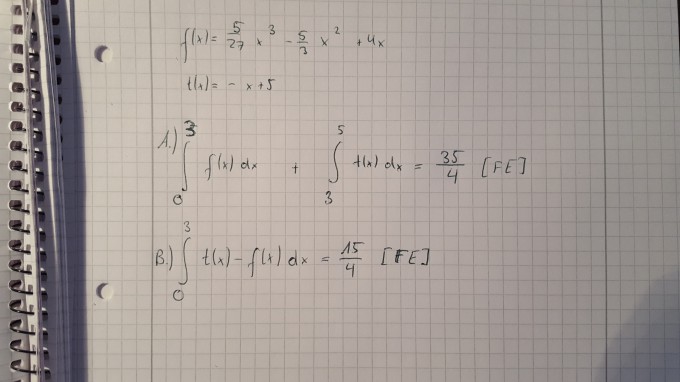 f(x) = 5/27 x³ - 5/3 x² + 4x
t(x) = - x + 5
A.) ∫₀³ f(x) dx + ∫₃⁵ t(x) dx = 35/4 [FE]
B.) ∫₀³ t(x) - f(x) dx = 15/4 [FE]